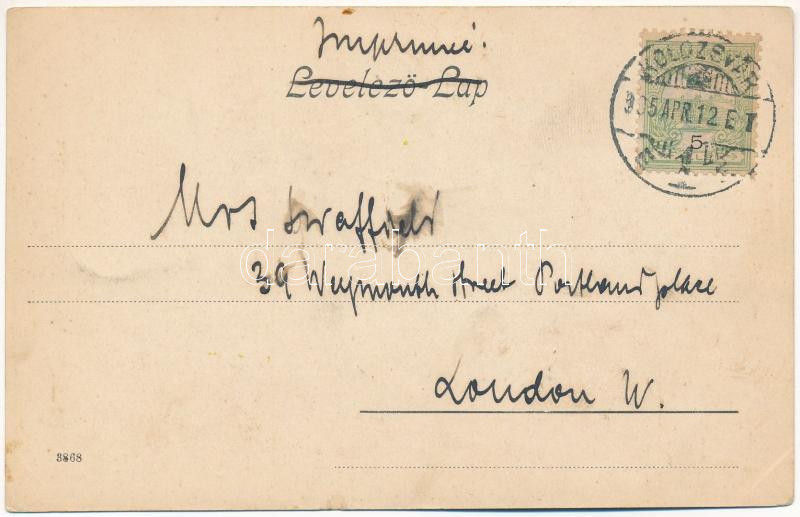 Imprimé.
Levelező-Lap
KOLOZSVÁR
905 APR. 12 E
5
Mrs Swaffield
39 Weymouth Street Portland place
London W.
3868
darabanth